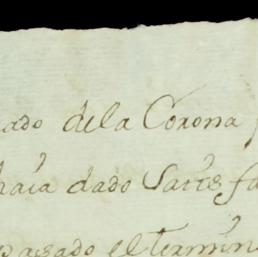 ado dela Corona
haia dado Satisfa
pasado el termin